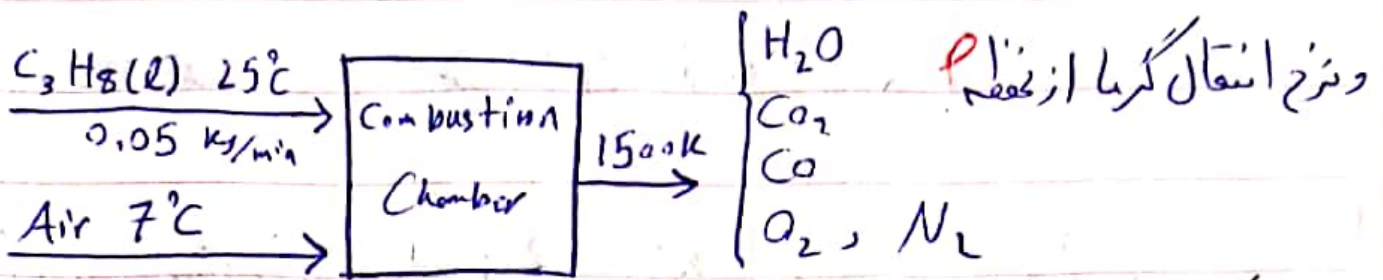 C₃H₈(l) 25°C
0.05 kg/min
Air 7°C
Combustion
Chamber
1500K
H₂O
CO₂
CO
O₂ , N₂
و نرخ انتقال گرما از محفظه؟